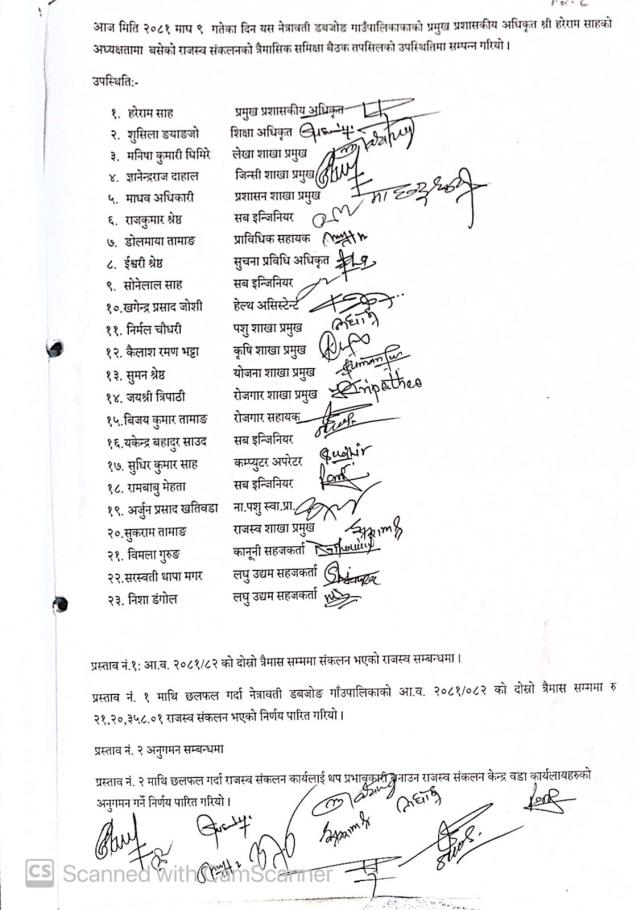 आज मिति २०८१ माघ ९ गतेका दिन यस नेत्रावती डबजोङ गाउँपालिकाकाको प्रमुख प्रशासकीय अधिकृत श्री हरेराम साहको
अध्यक्षतामा बसेको राजस्व संकलनको त्रैमासिक समिक्षा बैठक तपसिलको उपस्थितिमा सम्पन्न गरियो ।
उपस्थिति:-
१. हरेराम साह प्रमुख प्रशासकीय अधिकृत
२. शुसिला डयाङजो शिक्षा अधिकृत
३. मनिषा कुमारी घिमिरे लेखा शाखा प्रमुख
४. ज्ञानेन्द्रराज दाहाल जिन्सी शाखा प्रमुख
५. माधव अधिकारी प्रशासन शाखा प्रमुख
६. राजकुमार श्रेष्ठ सब इन्जिनियर
७. डोलमाया तामाङ प्राविधिक सहायक
८. ईश्वरी श्रेष्ठ सुचना प्रविधि अधिकृत
९. सोनेलाल साह सब इन्जिनियर
१०.खगेन्द्र प्रसाद जोशी हेल्थ असिस्टेन्ट
११. निर्मल चौधरी पशु शाखा प्रमुख
१२. कैलाश रमण भट्टा कृषि शाखा प्रमुख
१३. सुमन श्रेष्ठ योजना शाखा प्रमुख
१४. जयश्री त्रिपाठी रोजगार शाखा प्रमुख Tripathee
१५.बिजय कुमार तामाङ रोजगार सहायक
१६.यकेन्द्र बहादुर साउद सब इन्जिनियर
१७. सुधिर कुमार साह कम्प्युटर अपरेटर Sudhir
१८. रामबाबु मेहता सब इन्जिनियर
१९. अर्जुन प्रसाद खतिवडा ना.पशु स्वा.प्रा.
२०.सुकराम तामाङ राजस्व शाखा प्रमुख
२१. विमला गुरुङ कानूनी सहजकर्ता
२२.सरस्वती थापा मगर लघु उद्यम सहजकर्ता
२३. निशा डंगोल लघु उद्यम सहजकर्ता
प्रस्ताव नं.१: आ.व. २०८१/८२ को दोस्रो त्रैमास सम्ममा संकलन भएको राजस्व सम्बन्धमा ।
प्रस्ताव नं. १ माथि छलफल गर्दा नेत्रावती डबजोङ गाँउपालिकाको आ.व. २०८१/०८२ को दोस्रो त्रैमास सम्ममा रु
२१,२०,३५८.०१ राजस्व संकलन भएको निर्णय पारित गरियो ।
प्रस्ताव नं. २ अनुगमन सम्बन्धमा
प्रस्ताव नं. २ माथि छलफल गर्दा राजस्व संकलन कार्यलाई थप प्रभावकारी बनाउन राजस्व संकलन केन्द्र वडा कार्यलायहरुको
अनुगमन गर्ने निर्णय पारित गरियो ।
CS Scanned with CamScanner